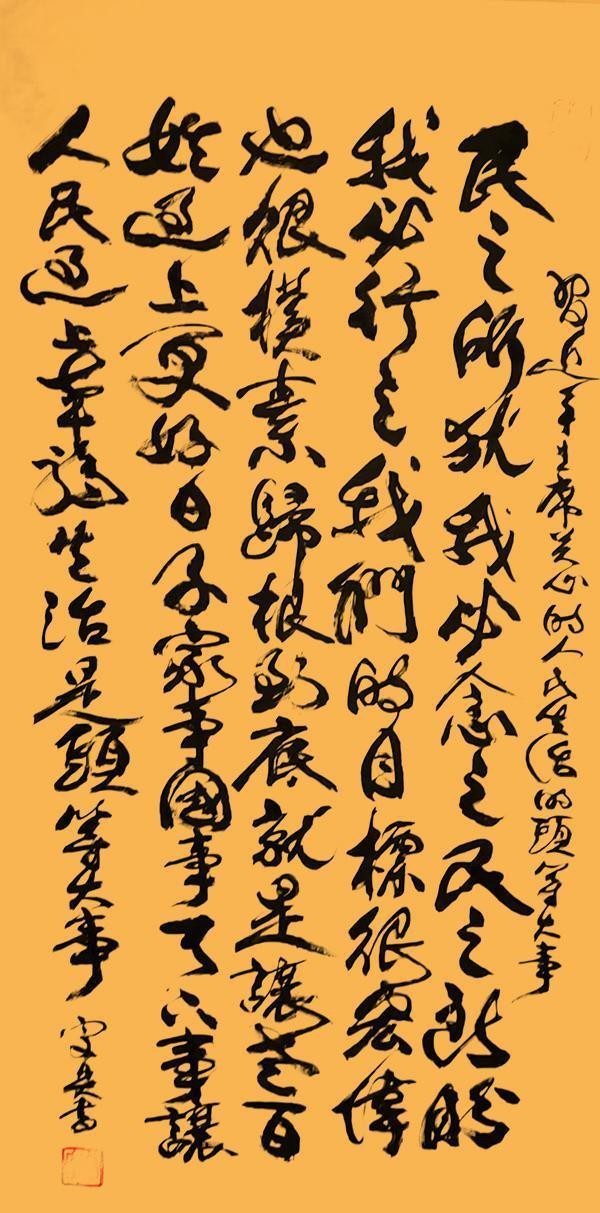 習近平主席关心的人民生活的頭等大事
民之所忧我必念之民之所盼
我必行之我們的目標很宏偉
也很樸素歸根到底就是讓老百
姓過上更好日子家事國事天下事讓
人民過上幸福生活是頭等大事
書